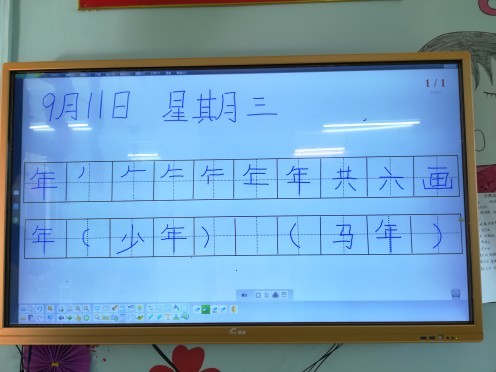 1/1
9月11日 星期月三
年丿𠂉 年共六画
年(少年) (马年)